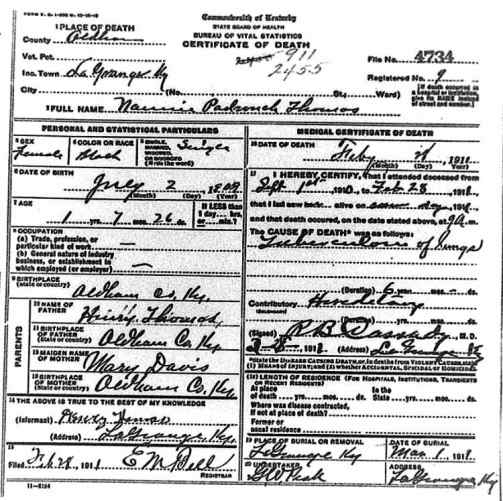 Commonwealth of Kentucky
STATE BOARD OF HEALTH
BUREAU OF VITAL STATISTICS
CERTIFICATE OF DEATH
1 PLACE OF DEATH
County Oldham
Vot. Pct.
911
2455
File No. 4734
Inc. Town La Grange Ky
Registered No. 9
City (No. St.; Ward)
[If death occurred in a Hospital or Institution, give its NAME instead of street and number.]
2 FULL NAME Nannie Thomas
PERSONAL AND STATISTICAL PARTICULARS
3 SEX Female
4 COLOR OR RACE Black
5 SINGLE, MARRIED, WIDOWED OR DIVORCED (Write the word) Single
6 DATE OF BIRTH July 2
(Month) (Day) (Year)
7 AGE 1 yrs. 7 mos. 26 ds.
If LESS than 1 day... hrs. or... min.?
8 OCCUPATION
(a) Trade, profession, or particular kind of work —
(b) General nature of industry business, or establishment in which employed (or employer) —
9 BIRTHPLACE (State or country) Oldham Co, Ky.
PARENTS
10 NAME OF FATHER Henry Thomas,
11 BIRTHPLACE OF FATHER (State or country) Oldham Co Ky,
12 MAIDEN NAME OF MOTHER Mary Davis
13 BIRTHPLACE OF MOTHER (State or country) Oldham Co, Ky
14 THE ABOVE IS TRUE TO THE BEST OF MY KNOWLEDGE
(Informant) Henry Thomas
(Address) LaGrange, Ky.
15 Filed Feb 28, 1911 E M Bell
REGISTRAR
MEDICAL CERTIFICATE OF DEATH
16 DATE OF DEATH Feby 1911
(Month) (Day) (Year)
17 I HEREBY CERTIFY, That I attended deceased from
Sept 1st 1910, to Feb 28 1911,
that I last saw her alive on same day 1911,
and that death occurred, on the date stated above, at 9 a m.
The CAUSE OF DEATH* was as follows:
Tuberculosis of Lungs
(Duration) yrs. 6 mos. ds.
Contributory Hereditary
(Duration) yrs. mos. ds.
(Signed) R B Cassady, M. D.
1911 (Address) La Grange Ky
*State the DISEASE CAUSING DEATH, or, in deaths from VIOLENT CAUSES, state (1) MEANS OF INJURY; and (2) whether ACCIDENTAL, SUICIDAL or HOMICIDAL.
18 LENGTH OF RESIDENCE (FOR HOSPITALS, INSTITUTIONS, TRANSIENTS OR RECENT RESIDENTS)
At place of death yrs. mos. ds. In the State yrs. mos. ds.
Where was disease contracted,
If not at place of death?
Former or usual residence
19 PLACE OF BURIAL OR REMOVAL LaGrange Ky
DATE OF BURIAL Mar 1, 1911
20 UNDERTAKER G W Peak
ADDRESS LaGrange Ky
11—3184